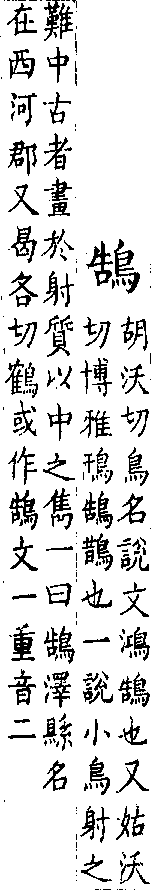 鵠
胡沃切鳥名說文鴻鵠也又姑沃
切博雅鳱鵠鵲也一說小鳥射之
難中古者畫於射質以中之雋一曰鵠澤縣名
在西河郡又曷各切鶴或作鵠文一重音二